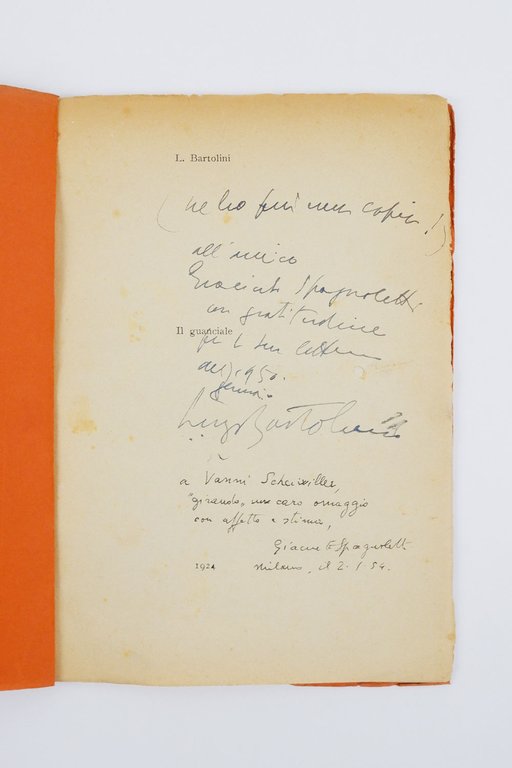 L. Bartolini
(ne ho più una copia!)
all'amico
Giacinto Spagnoletti
con gratitudine
Il guanciale
per la sua lettera
del 1950.
gennaio
Luigi Bartolini
a Vanni Scheiwiller,
"girando" un caro omaggio
con affetto e stima,
Giacinto Spagnoletti
1924 Milano, il 2.1.54.